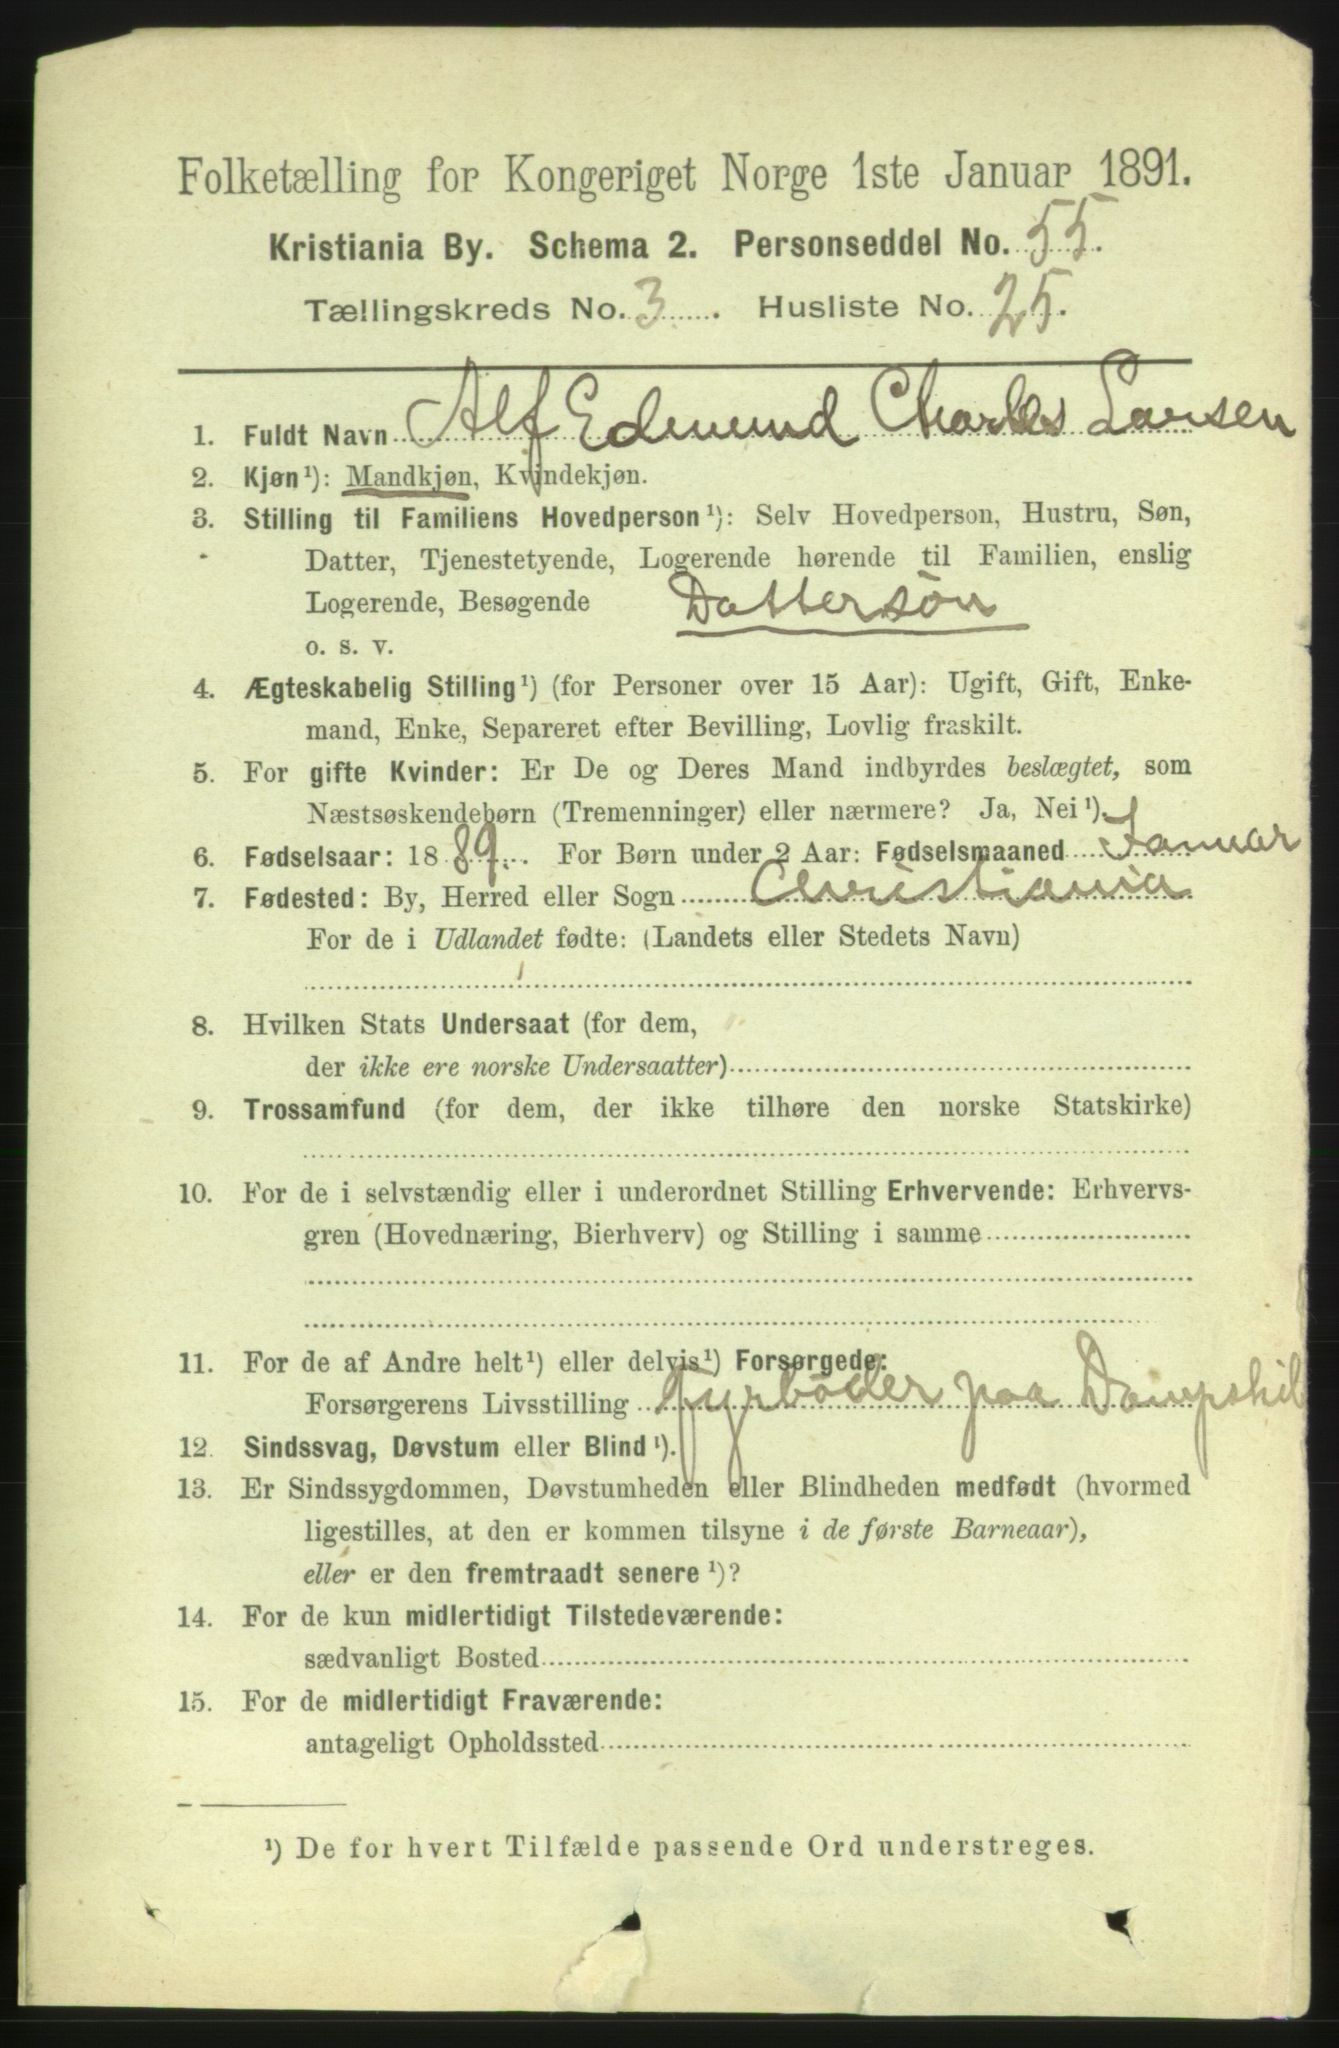 Folketælling for Kongeriget Norge 1ste Januar 1891.
Kristiania By. Schema 2. Personseddel No. 55.
Tællingskreds No. 3. Husliste No. 25.
1. Fuldt Navn Alf Edmund Charles Larsen
2. Kjøn¹): Mandkjøn, Kvindekjøn.
3. Stilling til Familiens Hovedperson¹): Selv Hovedperson, Hustru, Søn,
Datter, Tjenestetyende, Logerende hørende til Familien, enslig
Logerende, Besøgende Dattersön
o. s. v.
4. Ægteskabelig Stilling¹) (for Personer over 15 Aar): Ugift, Gift, Enke-
mand, Enke, Separeret efter Bevilling, Lovlig fraskilt.
5. For gifte Kvinder: Er De og Deres Mand indbyrdes beslægtet, som
Næstsøskendebørn (Tremenninger) eller nærmere? Ja, Nei¹).
6. Fødselsaar: 1889. For Børn under 2 Aar: Fødselsmaaned Januar
7. Fødested: By, Herred eller Sogn Christiania
For de i Udlandet fødte: (Landets eller Stedets Navn)
8. Hvilken Stats Undersaat (for dem,
der ikke ere norske Undersaatter)
9. Trossamfund (for dem, der ikke tilhøre den norske Statskirke)
10. For de i selvstændig eller i underordnet Stilling Erhvervende: Erhvervs-
gren (Hovednæring, Bierhverv) og Stilling i samme
11. For de af Andre helt¹) eller delvis¹) Forsørgede:
Forsørgerens Livsstilling Fyrböder paa Dampskib
12. Sindssvag, Døvstum eller Blind¹).
13. Er Sindssygdommen, Døvstumheden eller Blindheden medfødt (hvormed
ligestilles, at den er kommen tilsyne i de første Barneaar),
eller er den fremtraadt senere¹)?
14. For de kun midlertidigt Tilstedeværende:
sædvanligt Bosted
15. For de midlertidigt Fraværende:
antageligt Opholdssted
¹) De for hvert Tilfælde passende Ord understreges.